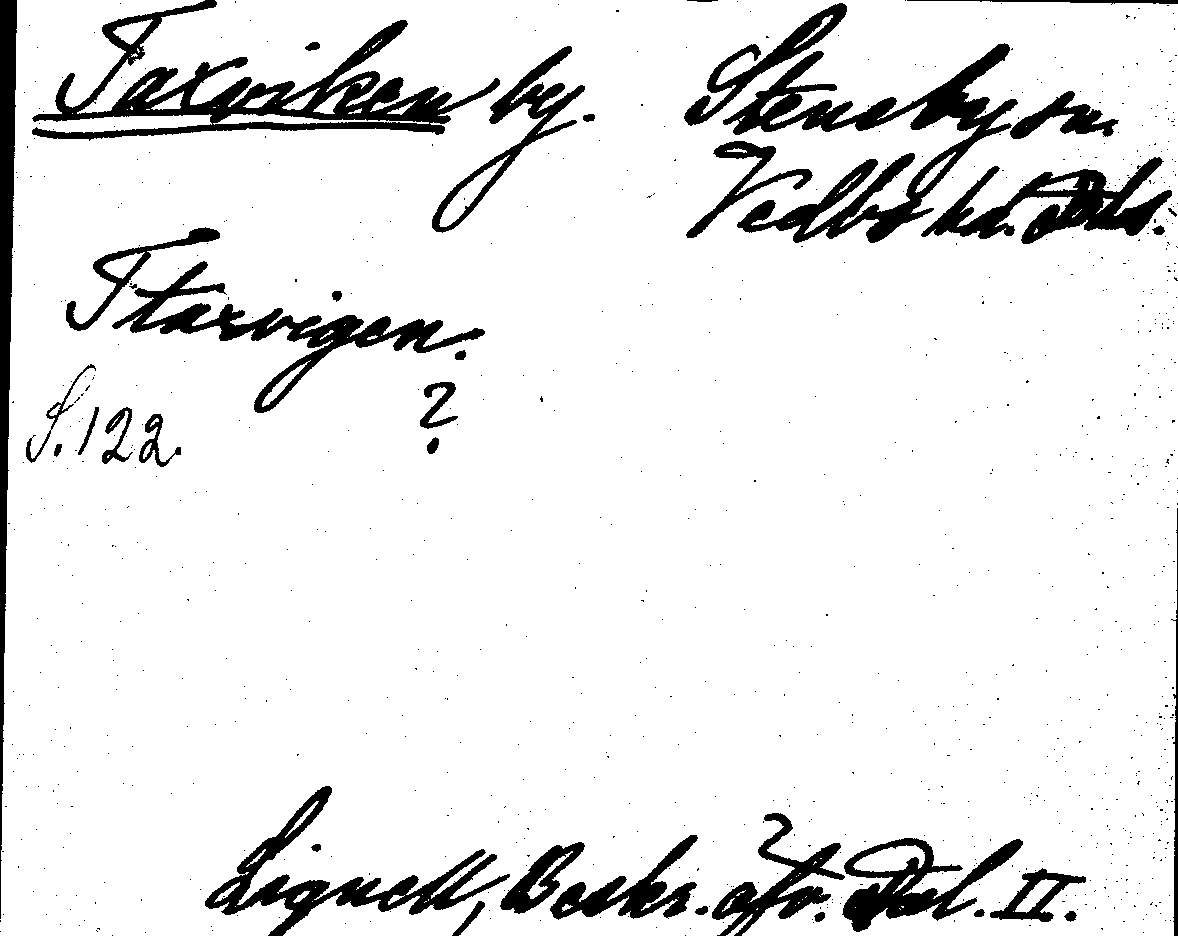 Taxviken by. Steneby sn.
Vedbo hd. Dals.
Ttaxvigen.
?
S. 122.
Lignell, Beskr. öfv. Dal. II.